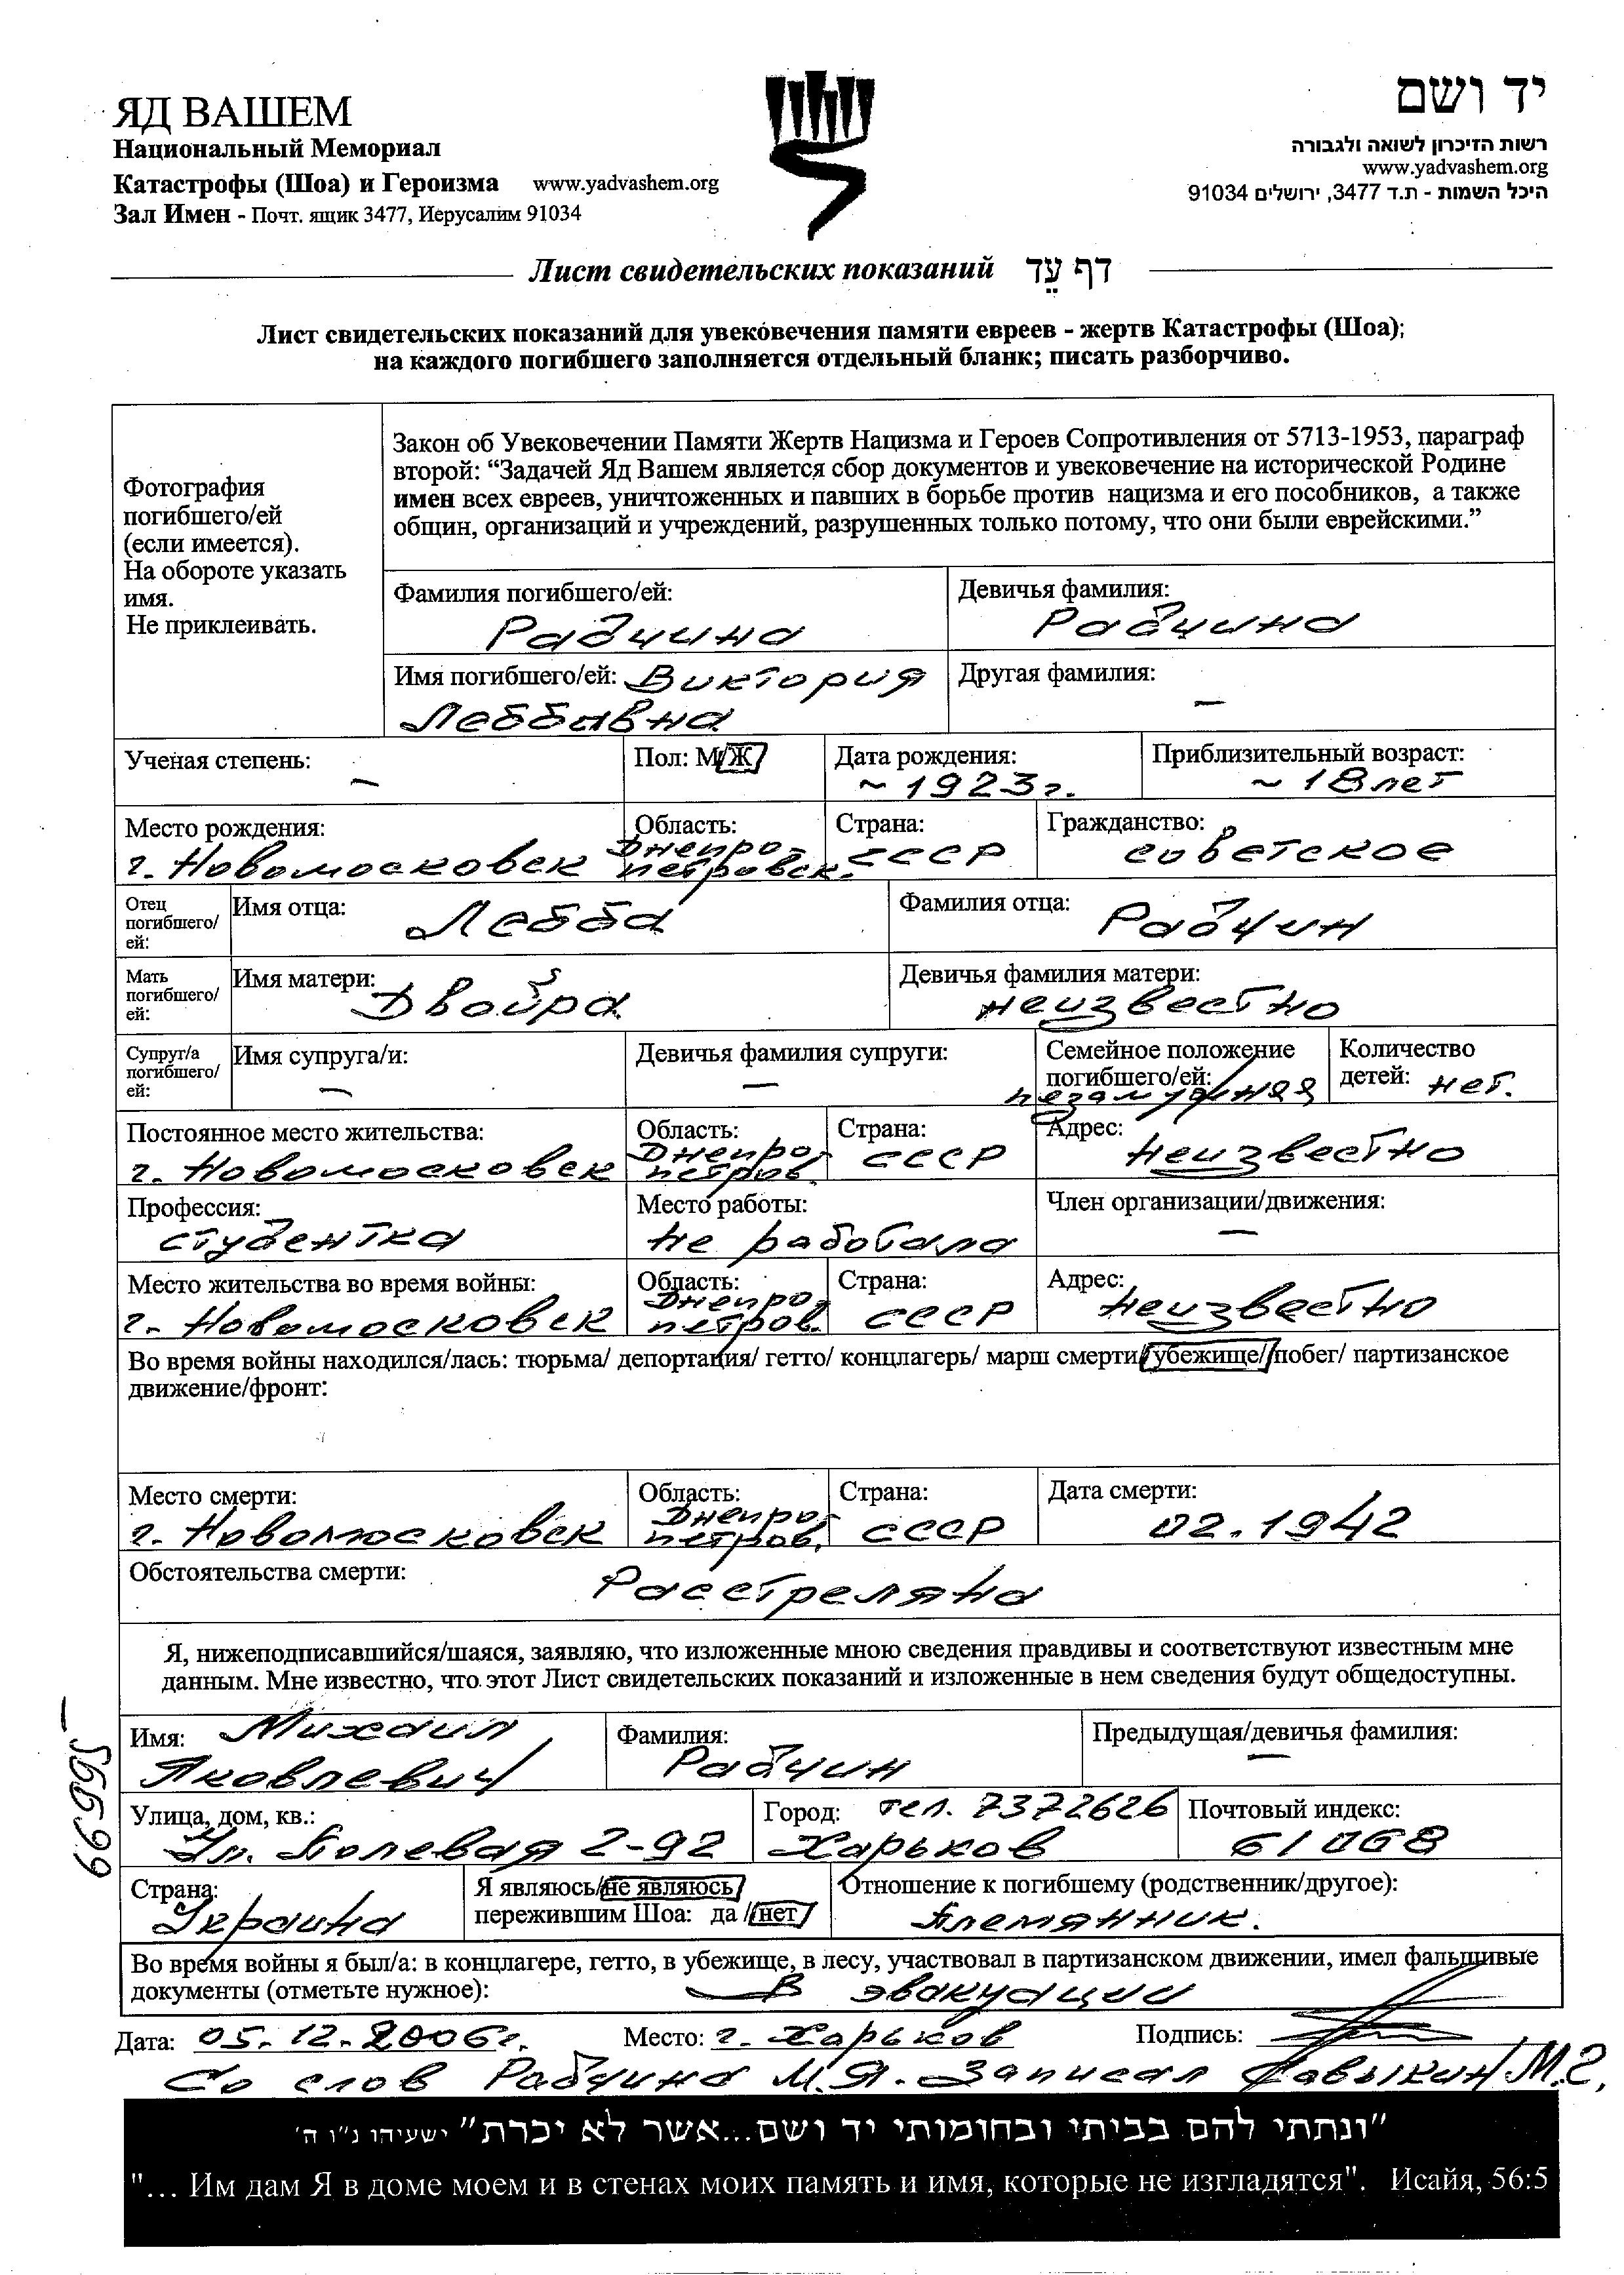 ЯД ВАШЕМ
Национальный Мемориал
Катастрофы (Шоа) и Героизма www.yadvashem.org
Зал Имен - Почт. ящик 3477, Иерусалим 91034
יד ושם
רשות הזיכרון לשואה ולגבורה
www.yadvashem.org
היכל השמות - ת.ד 3477, ירושלים 91034
Лист свидетельских показаний דף עֵד
Лист свидетельских показаний для увековечения памяти евреев - жертв Катастрофы (Шоа);
на каждого погибшего заполняется отдельный бланк; писать разборчиво.
Фотография
погибшего/ей
(если имеется).
На обороте указать
имя.
Не приклеивать.
Закон об Увековечении Памяти Жертв Нацизма и Героев Сопротивления от 5713-1953, параграф
второй: “Задачей Яд Вашем является сбор документов и увековечение на исторической Родине
имен всех евреев, уничтоженных и павших в борьбе против нацизма и его пособников, а также
общин, организаций и учреждений, разрушенных только потому, что они были еврейскими.”
Фамилия погибшего/ей:
Рабчина
Девичья фамилия:
Рабчина
Имя погибшего/ей: Виктория
Леббавна
Другая фамилия:
—
Ученая степень:
—
Пол: М/Ж
Дата рождения:
~ 1923 г.
Приблизительный возраст:
~ 18 лет
Место рождения:
г. Новомосковск
Область:
Днепро-
петровск.
Страна:
СССР
Гражданство:
советское
Отец
погибшего/
ей:
Имя отца: Лебба
Фамилия отца: Рабчин
Мать
погибшего/
ей:
Имя матери: Двойра
Девичья фамилия матери:
неизвестно
Супруг/а
погибшего/
ей:
Имя супруга/и:
—
Девичья фамилия супруги:
—
Семейное положение
погибшего/ей:
незамужняя
Количество
детей: нет.
Постоянное место жительства:
г. Новомосковск
Область:
Днепро-
петров.
Страна:
СССР
Адрес:
неизвестно
Профессия:
студентка
Место работы:
не работала
Член организации/движения:
—
Место жительства во время войны:
г. Новомосковск
Область:
Днепро-
петров.
Страна:
СССР
Адрес:
неизвестно
Во время войны находился/лась: тюрьма/ депортация/ гетто/ концлагерь/ марш смерти/ убежище/ побег/ партизанское
движение/фронт:
Место смерти:
г. Новомосковск
Область:
Днепро-
петров.
Страна:
СССР
Дата смерти:
02.1942
Обстоятельства смерти:
Расстреляна
Я, нижеподписавшийся/шаяся, заявляю, что изложенные мною сведения правдивы и соответствуют известным мне
данным. Мне известно, что этот Лист свидетельских показаний и изложенные в нем сведения будут общедоступны.
Имя: Михаил
Яковлевич
Фамилия:
Рабчин
Предыдущая/девичья фамилия:
—
Улица, дом, кв.:
Ул. Полевая 2-92
Город: тел. 7372626
Харьков
Почтовый индекс:
61068
Страна:
Украина
Я являюсь/не являюсь
пережившим Шоа: да / нет
Отношение к погибшему (родственник/другое):
Племянник.
Во время войны я был/а: в концлагере, гетто, в убежище, в лесу, участвовал в партизанском движении, имел фальшивые
документы (отметьте нужное): В эвакуации
Дата: 05.12.2006г. Место: г. Харьков Подпись:
Со слов Рабчина М.Я. Записал М.Г.
"ונתתי להם בביתי ובחומותי יד ושם...אשר לא יכרת" ישעיהו נ"ו ה'
"... Им дам Я в доме моем и в стенах моих память и имя, которые не изгладятся". Исайя, 56:5